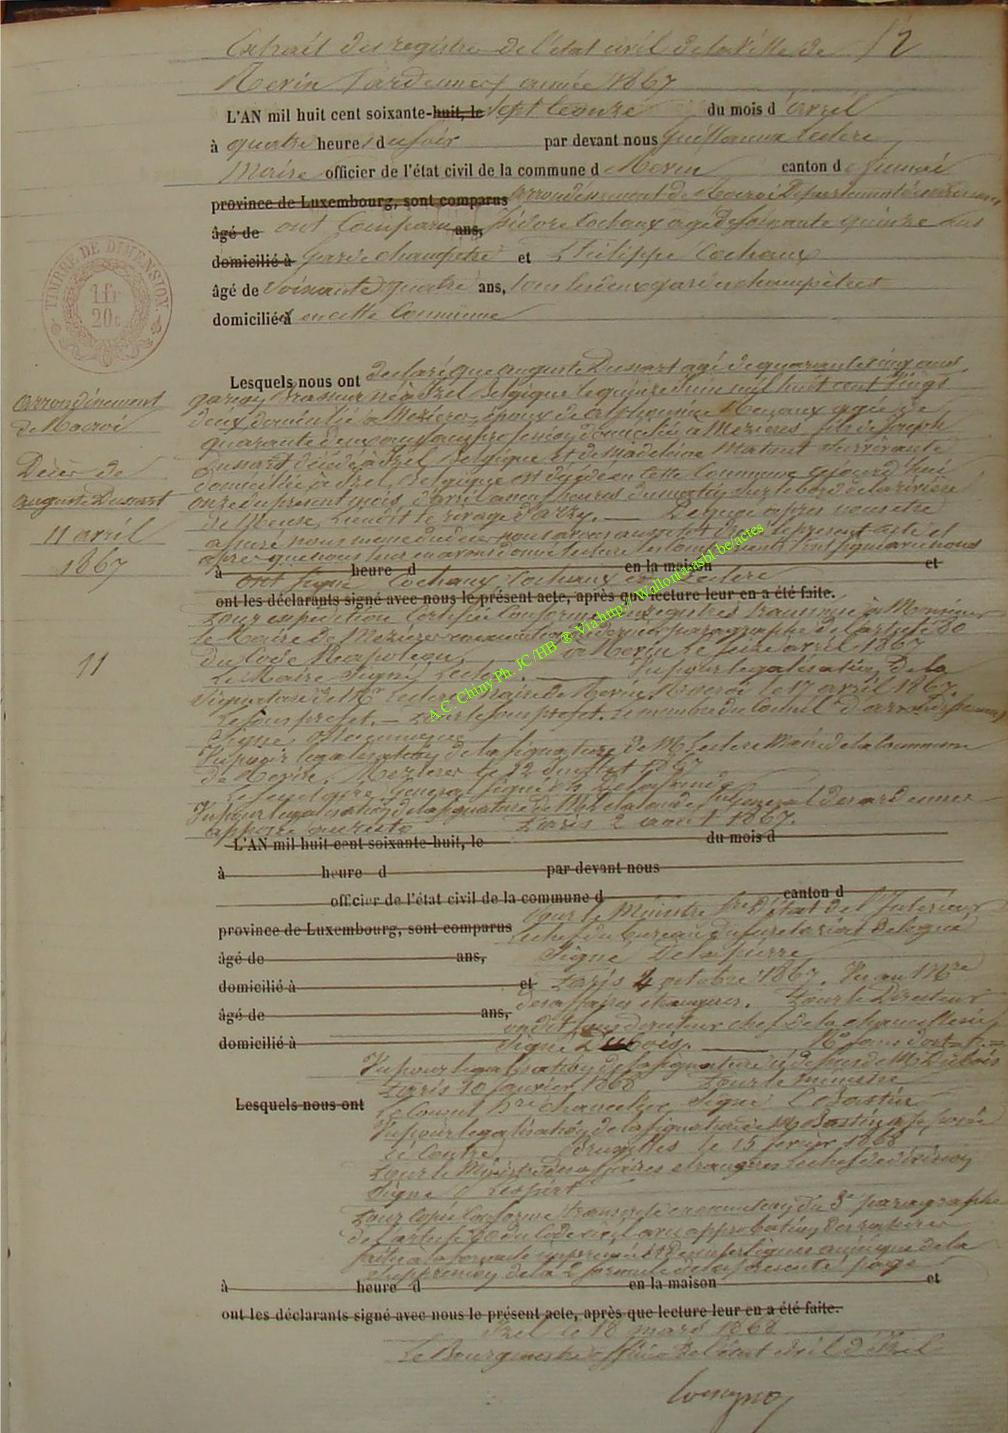 Extrait des registres de l'état civil de la Ville de 12
Revin (ardennes) année 1867
L'AN mil huit cent soixante-huit, le sept le onze du mois d'avril
à quatre heures du soir par devant nous Guillaume Leclere
Maire officier de l'état civil de la commune de Revin canton de fumai
province de Luxembourg, sont comparus arrondissement de Rocroi Département des ardennes
âgé de ont Comparu ans, Isidore Cochaux agé de soixante quinze ans
domicilié à garde champêtre et Philippe Cochaux
âgé de Soixante quatre ans, tous les deux gardes champêtres
domiciliés à en cette Commune
TIMBRE DE DIMENSION
1 fr
20c
Lesquels nous ont déclaré que auguste Dussart agé de quarante cinq ans
né à Izel Belgique le quinze Juin mil huit cent vingt
deux domicilié à Mezieres époux de Renaux agée de
quarante deux ans sans profession domiciliée à Mezieres fils de Joseph
Dussart décédé à Izel, Belgique et de Madeleine survivante
domiciliée à Izel, Belgique est décédé en cette Commune aujourd'hui
onze du présent mois d'avril à neuf heures du matin sur le bord de la rivière
de Meuse, lieudit le rivage d'. Desuite après nous être
assuré nous même du décès nous avons dressé le présent acte et
après que nous leur en avons donné lecture les comparants l'ont signé avec nous
arrondissement
de Rocroi
Décès de
auguste Dussart
11 avril
1867
à heure d en la maison et
ont signé Cochaux, Cochaux et Leclere
ont les déclarants signé avec nous le présent acte, après que lecture leur en a été faite.
Pour expédition Certifiée Conforme aux registres transmise à Monsieur
le Maire de Mezieres en exécution du dernier paragraphe de l'article 80
du Code Napoléon, à Revin le seize avril 1867
Le Maire Signé Leclere. Vu pour légalisation de la
signature de Mr Leclere Maire de Revin, Rocroi le 17 avril 1867.
Le sous prefet. — Pour le sous prefet. Le membre du Conseil d'arrondissement
Signé
11
Vu pour légalisation de la signature de M. Leclere Maire de la Commune
de Revin, Mezieres le 22 Juillet 1867
Le Secrétaire Général signé
Vu pour légalisation de la signature de Mr Gnéral des ardennes
apposée au recto Paris 2 aout 1867.
L'AN mil huit cent soixante-huit, le du mois d
à heure d par devant nous
officier de l'état civil de la commune d canton d
Pour le Ministre Sre d'état de l'Intérieur
province de Luxembourg, sont comparus Le chef du bureau du secrétariat délégué
âgé de ans, Signé Delapierre
domicilié à et Paris 4 octobre 1867. Vu au Mère
des affaires étrangères. Pour le Directeur
âgé de ans, chef de la chancellerie
domicilié à Signé Dubois.
Vu pour légalisation de la signature ci dessus de M Dubois
Paris 10 Janvier 1868 Pour le ministre
Lesquels nous ont Le Consul hre chancelier Signé C Bastin
Vu pour légalisation de la signature de M Bastin apposée
Ci Contre Bruxelles le 15 février 1868
Pour le Ministre des affaires étrangères Le chef de division
Signé
Pour copie Conforme transcrite en exécution du 3e paragraphe
de l'article 80 du Code civil avec approbation des ratures
faites à la formule imprimée et ainsi que de la
suppression de la 2e formule de la présente page
à heure d en la maison et
ont les déclarants signé avec nous le présent acte, après que lecture leur en a été faite.
Izel le 18 mars 1868
Le Bourgmestre officier de l'état civil d'Izel
A.C. Chiny Ph. JC /HB ® Via http://Wallonia-asbl.be/actes